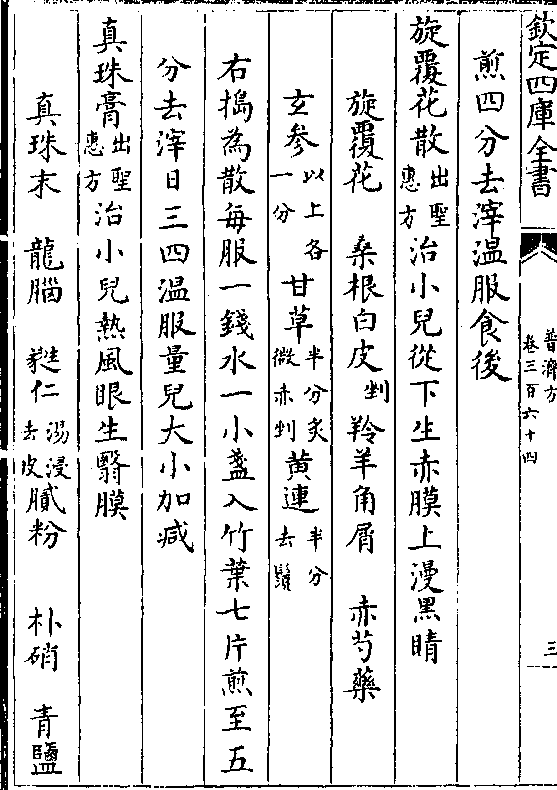 欽定四庫全書
普濟方
卷三百六十四
三
煎四分去滓溫服食後
旋覆花散出聖惠方治小兒從下生赤膜上漫黑睛
旋覆花 桑根白皮剉 羚羊角屑 赤芍藥
玄参以上各一分 甘草半分炙微赤剉 黄連半分去鬚
右搗為散每服一錢水一小盞入竹葉七片煎至五
分去滓日三四温服量兒大小加减
真珠膏出聖惠方治小兒熱風眼生翳膜
真珠末 龍腦 蕤仁湯浸去皮 膩粉 朴硝 青鹽